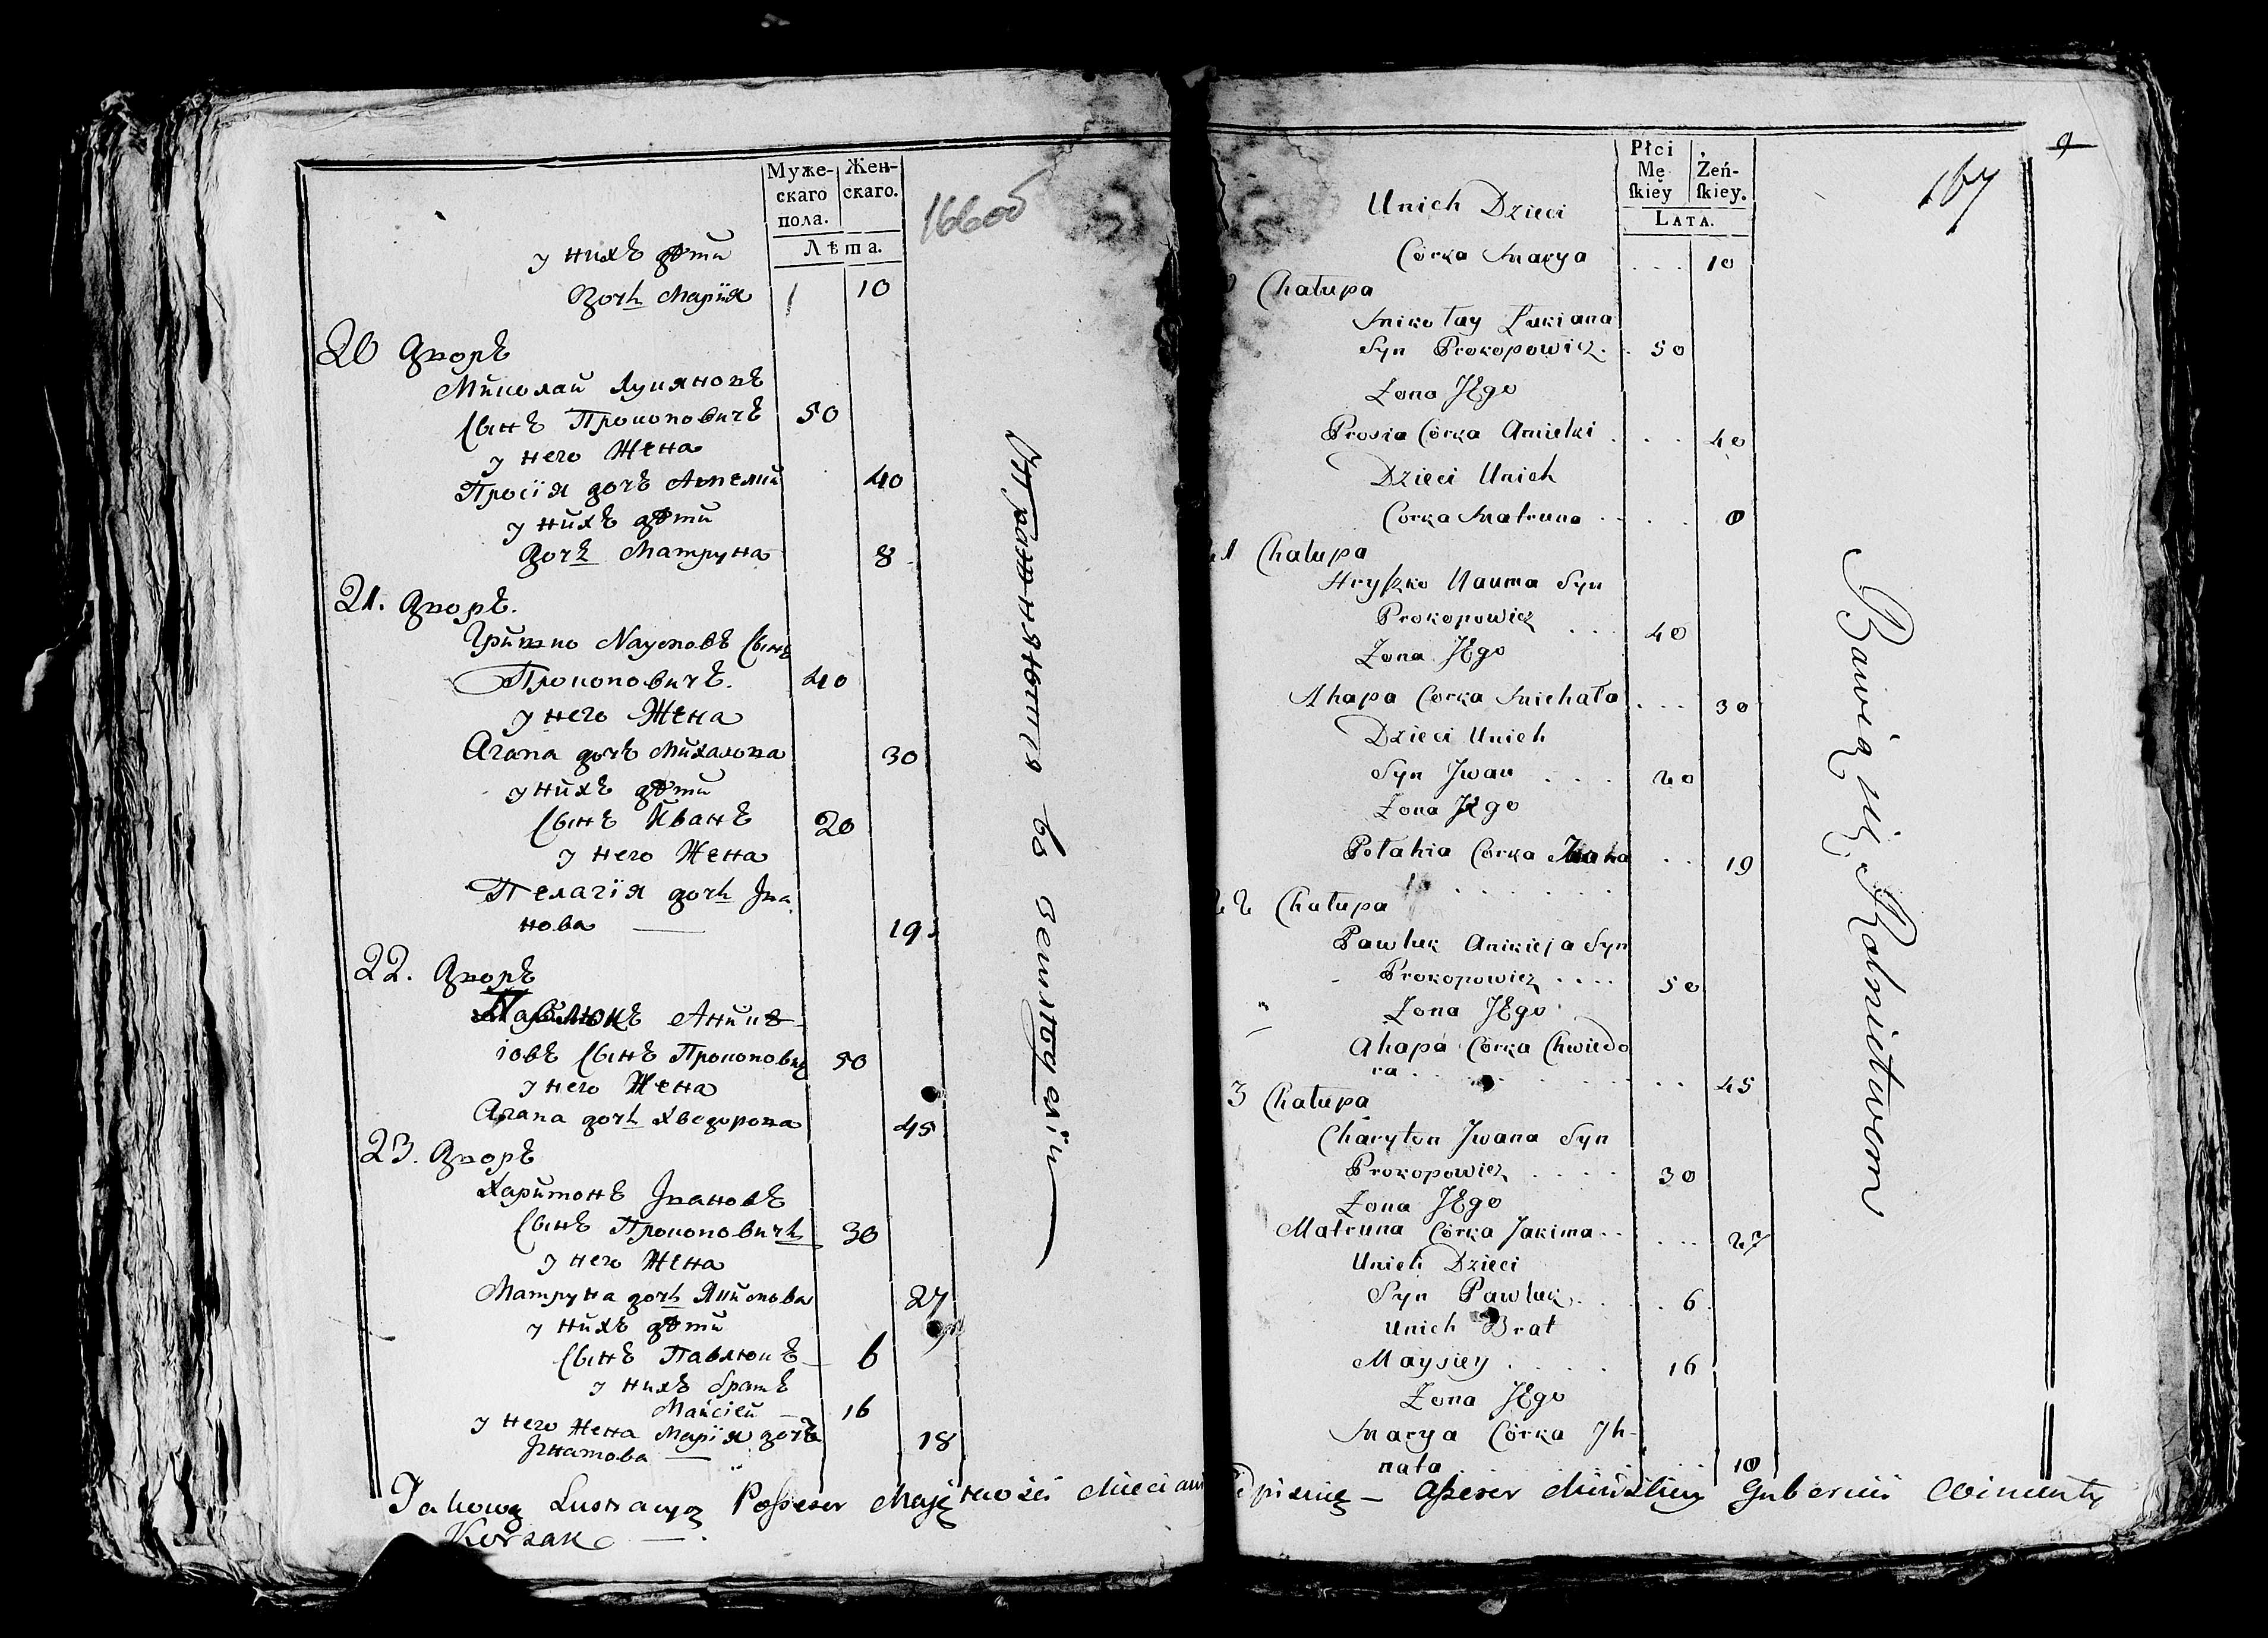 Муже-
скаго
пола.
Жен-
скаго.
Лѣта.
166об
у нихъ дѣти
Дочь Марїя 10
20 Дворъ
Миколай Лукяновъ
Сынъ Прокоповичъ 50
у него Жена
Просїя дочъ 40
у нихъ дѣти
Дочъ Матруна 8
21. Дворъ.
Гришко Naумовъ Сынъ
Прокоповичъ. 40
у него Жена
Агапа дочъ Михалова 30
у нихъ дѣти
Сынъ Иванъ 20
у него Жена
Пелагїя дочь Ива
нова 19
22. Дворъ
Павлюкъ Аникѣ
іовъ Сынъ Прокопович 50
у него Жена
Агапа дочь Хведорова 45
23. Дворъ
Харитонъ Ивановъ
Сынъ Прокоповичь 30
у него Жена
Матруна дочь Якимова 27
у нихъ дѣти
Сынъ Павлюкъ 6
у нихъ братъ
Майсїей 16
у него Жена Марїя дочъ
Игнатова 18
Упражняются въ
Takową Lustracyą Possesor Majętności
Korsak
167
9
Płci
Mę
ſkiey
Żeń-
ſkiey.
Lata.
Unich Dzieci
Córka Marya 10
Chałupa
Mikołay Łukiana
Syn Prokopowicz 50
Żona JEgo
Prosia Córka 40
Dzieci Unich
Corka Matruna 8
21 Chałupa
Hryszko Nauma Syn
Prokopowicz 40
Żona JEgo
Ahapa Córka Michała 30
Dzieci Unich
Syn Jwan 20
Żona JEgo
Połahia Córka Jwana 19
22 Chałupa
Pawluk Anikieja Syn
Prokopowicz 50
Żona JEgo
Ahapa Córka Chwiedo
ra 45
3 Chałupa
Charyton Jwana Syn
Prokopowicz 30
Żona JEgo
Matruna Córka Jakima 27
Unich Dzieci
Syn Pawluk 6
Unich Brat
Maysiey 16
Żona JEgo
Marya Córka Jh-
nata 18
Bawią się Rolnictwem
Assesor Gubernii Wincenty